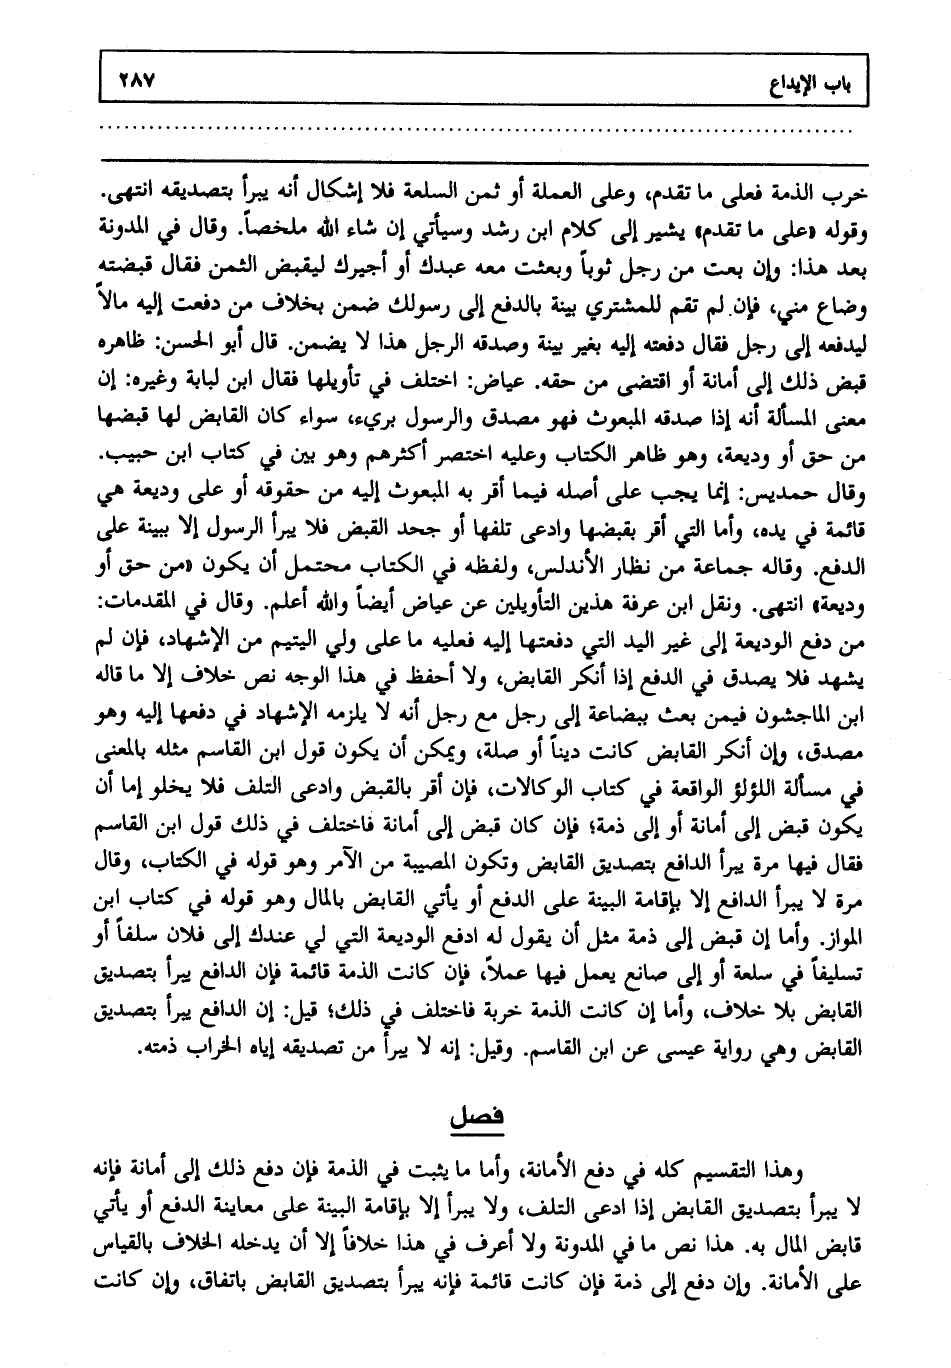 باب الإيداع ٢٨٧
خرب الذمة فعلى ما تقدم، وعلى العملة أو ثمن السلعة فلا إشكال أنه يبرأ بتصديقه انتهى.
وقوله «على ما تقدم» يشير إلى كلام ابن رشد وسيأتي إن شاء الله ملخصاً. وقال في المدونة
بعد هذا: وإن بعت من رجل ثوباً وبعثت معه عبدك أو أجيرك ليقبض الثمن فقال قبضته
وضاع مني، فإن لم تقم للمشتري بينة بالدفع إلى رسولك ضمن بخلاف من دفعت إليه مالاً
ليدفعه إلى رجل فقال دفعته إليه بغير بينة وصدقه الرجل هذا لا يضمن. قال أبو الحسن: ظاهره
قبض ذلك إلى أمانة أو اقتضى من حقه. عياض: اختلف في تأويلها فقال ابن لبابة وغيره: إن
معنى المسألة أنه إذا صدقه المبعوث فهو مصدق والرسول بريء، سواء كان القابض لها قبضها
من حق أو وديعة، وهو ظاهر الكتاب وعليه اختصر أكثرهم وهو بين في كتاب ابن حبيب.
وقال حمديس: إنما يجب على أصله فيما أقر به المبعوث إليه من حقوقه أو على وديعة هي
قائمة في يده، وأما التي أقر بقبضها وادعى تلفها أو جحد القبض فلا يبرأ الرسول إلا ببينة على
الدفع. وقاله جماعة من نظار الأندلس، ولفظه في الكتاب محتمل أن يكون «من حق أو
وديعة» انتهى. ونقل ابن عرفة هذين التأويلين عن عياض أيضاً والله أعلم. وقال في المقدمات:
من دفع الوديعة إلى غير اليد التي دفعتها إليه فعليه ما على ولي اليتيم من الإشهاد، فإن لم
يشهد فلا يصدق في الدفع إذا أنكر القابض، ولا أحفظ في هذا الوجه نص خلاف إلا ما قاله
ابن الماجشون فيمن بعث ببضاعة إلى رجل مع رجل أنه لا يلزمه الإشهاد في دفعها إليه وهو
مصدق، وإن أنكر القابض كانت ديناً أو صلة، ويمكن أن يكون قول ابن القاسم مثله بالمعنى
في مسألة اللؤلؤ الواقعة في كتاب الوكالات، فإن أقر بالقبض وادعى التلف فلا يخلو إما أن
يكون قبض إلى أمانة أو إلى ذمة؛ فإن كان قبض إلى أمانة فاختلف في ذلك قول ابن القاسم
فقال فيها مرة يبرأ الدافع بتصديق القابض وتكون المصيبة من الآمر وهو قوله في الكتاب، وقال
مرة لا يبرأ الدافع إلا بإقامة البينة على الدفع أو يأتي القابض بالمال وهو قوله في كتاب ابن
المواز. وأما إن قبض إلى ذمة مثل أن يقول له ادفع الوديعة التي لي عندك إلى فلان سلفاً أو
تسليفاً في سلعة أو إلى صانع يعمل فيها عملاً، فإن كانت الذمة قائمة فإن الدافع يبرأ بتصديق
القابض بلا خلاف، وأما إن كانت الذمة خربة فاختلف في ذلك؛ قيل: إن الدافع يبرأ بتصديق
القابض وهي رواية عيسى عن ابن القاسم. وقيل: إنه لا يبرأ من تصديقه إياه الخراب ذمته.
فصل
وهذا التقسيم كله في دفع الأمانة، وأما ما يثبت في الذمة فإن دفع ذلك إلى أمانة فإنه
لا يبرأ بتصديق القابض إذا ادعى التلف، ولا يبرأ إلا بإقامة البينة على معاينة الدفع أو يأتي
قابض المال به. هذا نص ما في المدونة ولا أعرف في هذا خلافاً إلا أن يدخله الخلاف بالقياس
على الأمانة. وإن دفع إلى ذمة فإن كانت قائمة فإنه يبرأ بتصديق القابض باتفاق، وإن كانت